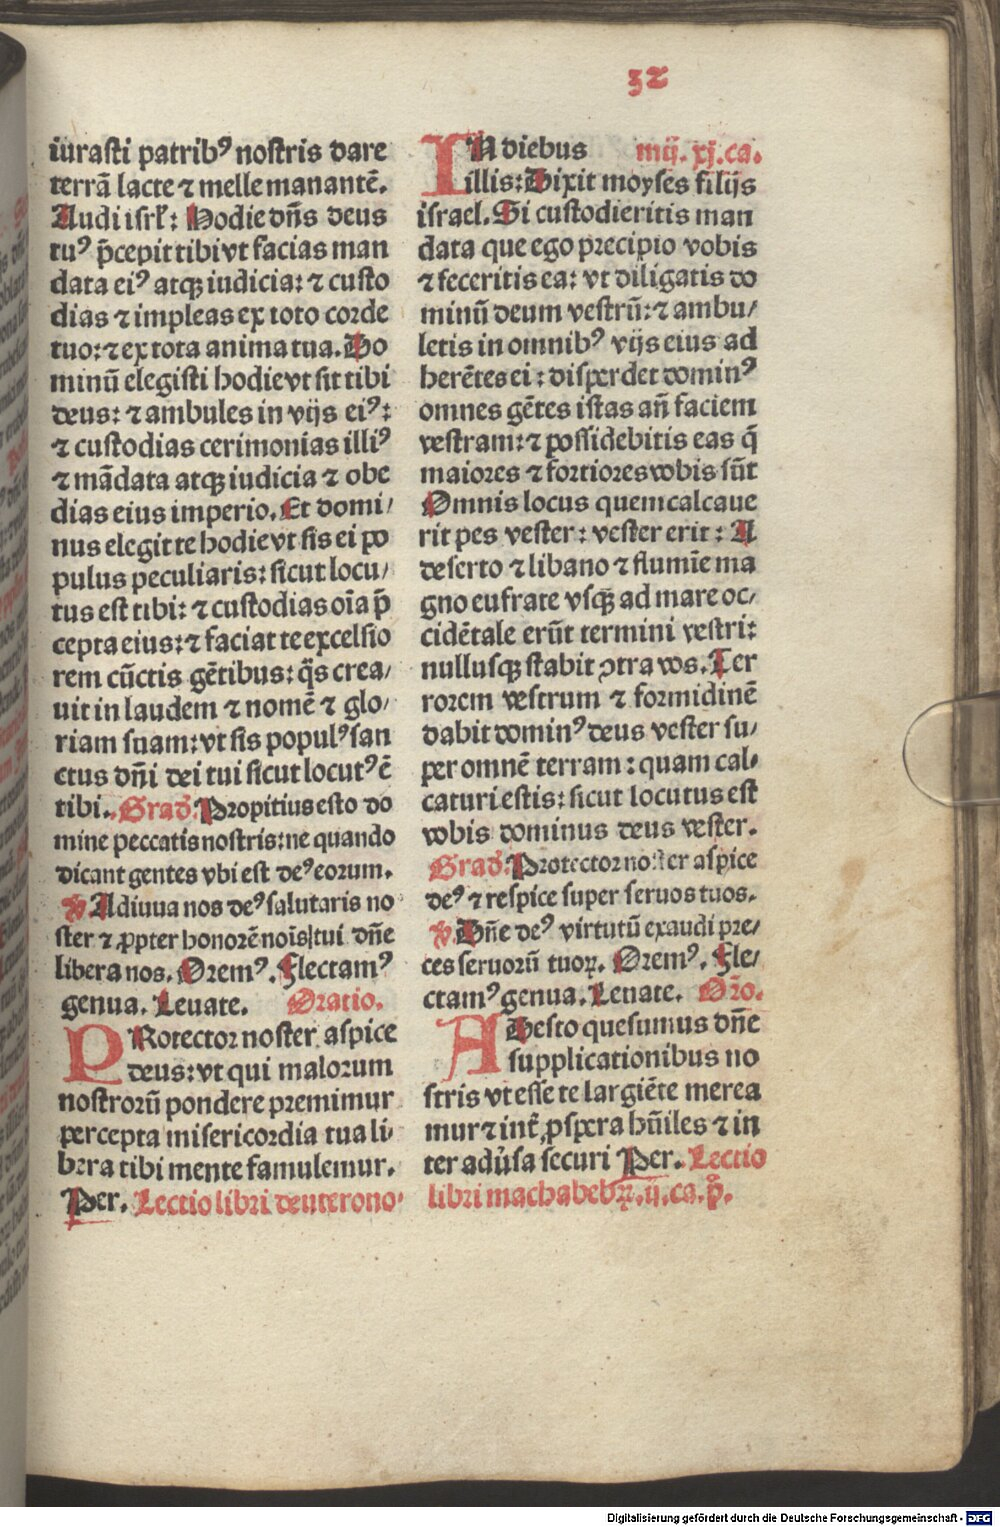 32
iurasti patribꝰ nostris dare
terrã lacte ⁊ melle manantē.
Audi isrł: Hodie dñs deus
tuꝰ p̄cepit tibi vt facias man
data eiꝰ atqꝫ iudicia: ⁊ custo
dias ⁊ impleas ex toto corde
tuo: ⁊ ex tota anima tua. Do
minū elegisti hodie vt sit tibi
deus: ⁊ ambules in vijs eiꝰ:
⁊ custodias cerimonias illiꝰ
⁊ mãdata atqꝫ iudicia ⁊ obe
dias eius imperio. Et domi/
nus elegit te hodie vt sis ei po
pulus peculiaris: sicut locu/
tus est tibi: ⁊ custodias oĩa p̄
cepta eius: ⁊ faciat te excelsio
rem cūctis gētibus: q̃s crea/
uit in laudem ⁊ nomē ⁊ glo/
riam suam: vt sis populꝰ san
ctus dñi dei tui sicut locutꝰ ē
tibi. Grad̄. Propitius esto do
mine peccatis nostris: ne quando
dicant gentes vbi est deꝰ eorum.
℣. Adiuua nos deꝰ salutaris no
ster ⁊ ꝓpter honorē nois̄ tui dñe
libera nos. Oremꝰ. Flectamꝰ
genua. Leuate. Oratio.
PRotector noster aspice
deus: vt qui malorum
nostrorū pondere premimur
percepta misericordia tua li/
bera tibi mente famulemur.
Per. Lectio libri deuterono/
IN diebus mij. xj. ca.
illis: Dixit moyses filijs
israel. Si custodieritis man
data que ego precipio vobis
⁊ feceritis ea: vt diligatis do
minū deum vestrū: ⁊ ambu/
letis in omnibꝰ vijs eius ad
herētes ei: disperdet dominꝰ
omnes gētes istas añ faciem
vestram: ⁊ possidebitis eas q̃
maiores ⁊ fortiores vobis sūt
Omnis locus quem calcaue
rit pes vester: vester erit: A
deserto ⁊ libano ⁊ flumĩe ma
gno eufrate vsqꝫ ad mare oc/
cidētale erūt termini vestri:
nullusqꝫ stabit ꝯtra vos. Ter
rorem vestrum ⁊ formidinē
dabit dominꝰ deus vester su/
per omnē terram: quam cal/
caturi estis: sicut locutus est
vobis dominus deus vester.
Grad̄. Protector noster aspice
deꝰ ⁊ respice super seruos tuos.
℣. Dñe deꝰ virtutū exaudi pre/
ces seruorū tuoꝝ. Oremꝰ. Fle/
ctamꝰ genua. Leuate. Or̃o.
ADesto quesumus dñe
supplicationibus no
stris vt esse te largiēte merea
mur ⁊ int̃ ꝓspera hūiles ⁊ in
ter adủsa securi Per. Lectio
libri machabebꝝ. ij. ca. pº.
Digitalisierung gefördert durch die Deutsche Forschungsgemeinschaft - DFG